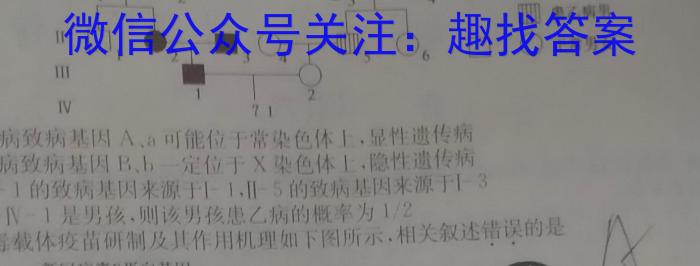 微信公众号关注：趣找答案
Ⅱ 2 3 4 5 6
Ⅲ
1 2
Ⅳ
? 1
病致病基因 A、a 可能位于常染色体上,显性遗传病
病致病基因 B、b 一定位于 X 染色体上,隐性遗传病
-1 的致病基因来源于Ⅰ-1,Ⅱ-5 的致病基因来源于Ⅰ-3
Ⅳ-1 是男孩,则该男孩患乙病的概率为 1/2
毒载体疫苗研制及其作用机理如下图所示,相关叙述错误的是
A